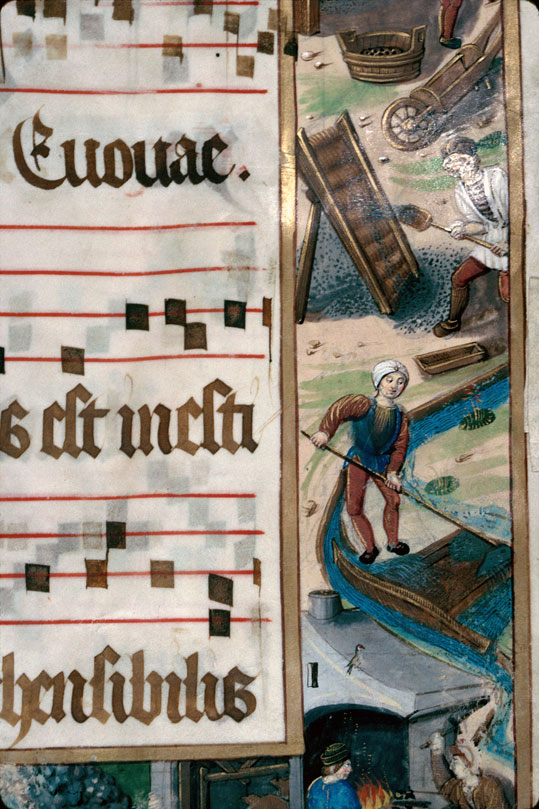 Euouae.
s est inesti
hensibilis